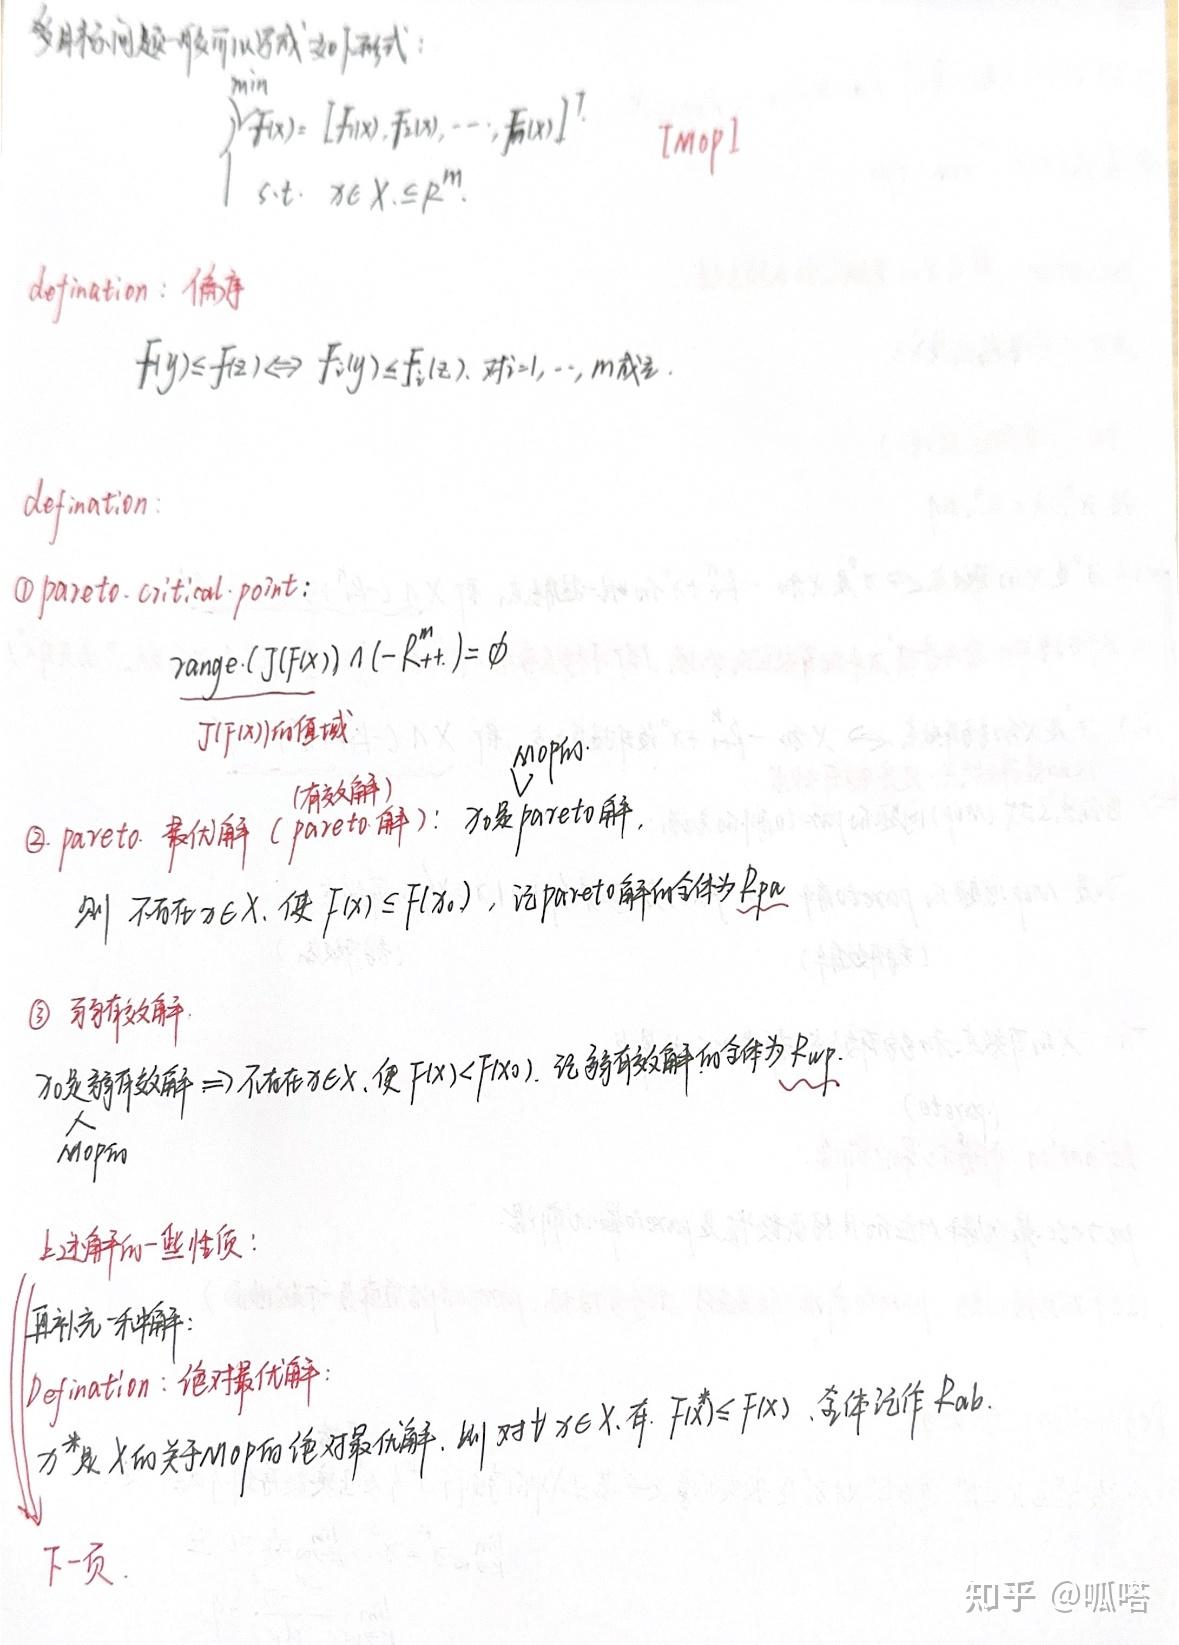 多目标问题一般可以写成如下形式：
min
F(x) = [F₁(x), F₂(x), ..., Fm(x)]ᵀ.
[MOP]
s.t. x∈X ⊆ Rᵐ.
defination: 偏序
F(y)≤F(z) ⇔ Fᵢ(y)≤Fᵢ(z). 对i=1, ..., m成立.
defination:
① pareto critical point:
range(J(F(x))) ∩ (-Rᵐ₊₊) = ∅
J(F(x))的值域
MOP的
(有效解)
② pareto 最优解 (pareto解): x₀是pareto解,
则 不存在x∈X, 使 F(x)≤F(x₀), 记pareto解的全体为Rpa
③ 弱有效解.
x₀是弱有效解 ⇒ 不存在x∈X, 使 F(x)<F(x₀). 记弱有效解的全体为Rwp.
MOP的
上述解的一些性质:
再补充一种解:
Defination: 绝对最优解:
x*是X的关于MOP的绝对最优解, 则 对∀x∈X, 有 F(x*)≤F(x), 全体记作Rab.
下一页.
知乎 @呱嗒